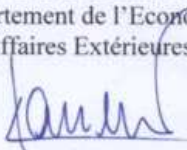 rtement de l'Econo
ffaires Extérieures